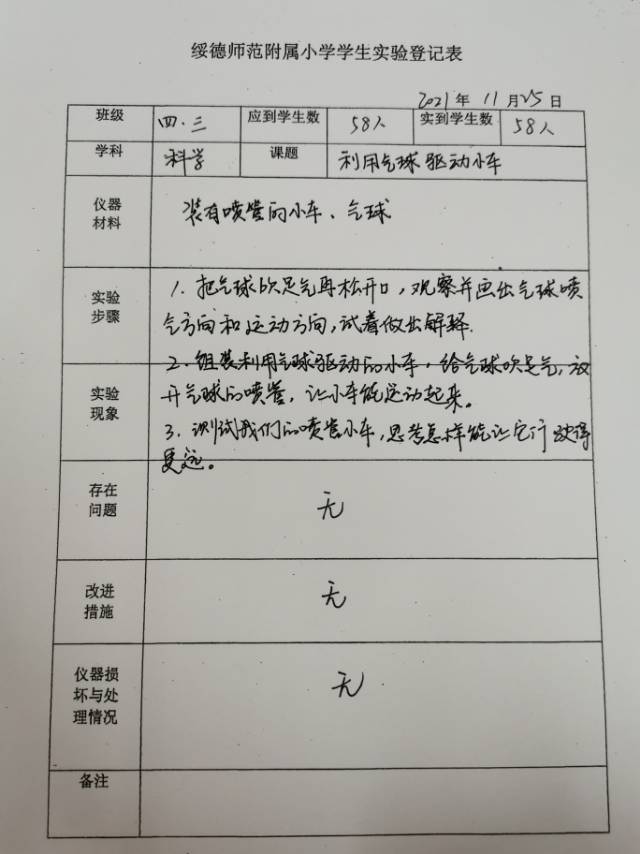 绥德师范附属小学学生实验登记表
2021年 11月25日
班级 四.三 应到学生数 58人 实到学生数 58人
学科 科学 课题 利用气球驱动小车
仪器材料 装有喷管的小车、气球
实验步骤 1. 把气球吹足气再松开口，观察并画出气球喷
气方向和运动方向，试着做出解释.
2. 组装利用气球驱动的小车，给气球吹足气，放
实验现象 开气球的喷管，让小车能运动起来。
3. 测试我们的喷管小车，思考怎样能让它行驶得
更远。
存在问题 无
改进措施 无
仪器损坏与处理情况 无
备注